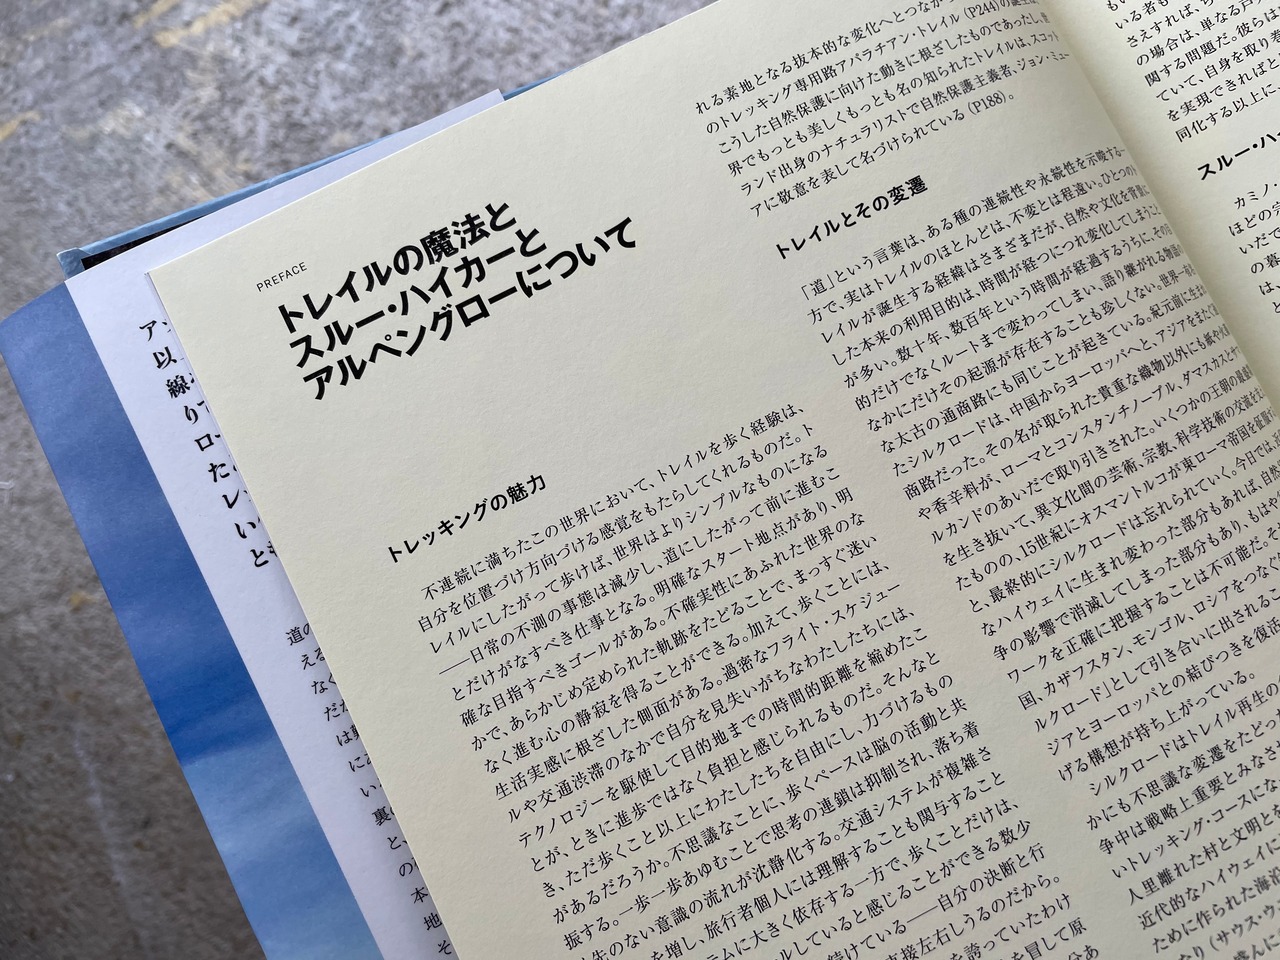 PREFACE
トレイルの魔法と
スルー・ハイカーと
アルペングローについて
トレッキングの魅力
不連続に満ちたこの世界において、トレイルを歩く経験は、
自分を位置づけ方向づける感覚をもたらしてくれるものだ。ト
レイルにしたがって歩けば、世界はよりシンプルなものになる
――日常の不測の事態は減少し、道にしたがって前に進むこ
とだけがなすべき仕事となる。明確なスタート地点があり、明
確な目指すべきゴールがある。不確実性にあふれた世界のな
かで、あらかじめ定められた軌跡をたどることで、まっすぐ迷い
なく進む心の静寂を得ることができる。加えて、歩くことには、
生活実感に根ざした側面がある。過密なフライト・スケジュー
ルや交通渋滞のなかで自分を見失いがちなわたしたちには、
テクノロジーを駆使して目的地までの時間的距離を縮めたこ
とが、ときに進歩ではなく負担と感じられるものだ。そんなと
き、ただ歩くこと以上にわたしたちを自由にし、力づけるもの
があるだろうか。不思議なことに、歩くペースは脳の活動と共
振する。一歩一歩あゆむことで思考の連鎖は抑制され、落ち着
先のない意識の流れが沈静化する。交通システムが複雑さ
を増し、旅行者個人には理解することも関与すること
テムに大きく依存する一方で、歩くことだけは、
ールしていると感じることができる数少
続けている――自分の決断と行
直接左右しうるのだから。
を誇っていたわけ
を冒して原
れる素地となる抜本的な変化へとつなが
のトレッキング専用路アパラチアン・トレイル（P244）の誕生は
こうした自然保護に向けた動きに根ざしたものであったし、世
界でもっとも美しくもっとも名の知られたトレイルは、スコット
ランド出身のナチュラリストで自然保護主義者、ジョン・ミュー
アに敬意を表して名づけられている（P188）。
トレイルとその変遷
「道」という言葉は、ある種の連続性や永続性を示唆する一
方で、実はトレイルのほとんどは、不変とは程遠い。ひとつのト
レイルが誕生する経緯はさまざまだが、自然や文化を背景に
した本来の利用目的は、時間が経つにつれ変化してしまうこと
が多い。数十年、数百年という時間が経過するうちに、その目
的だけでなくルートまで変わってしまい、語り継がれる物語の
なかにだけその起源が存在することも珍しくない。世界一有名
な太古の通商路にも同じことが起きている。紀元前に生まれ
たシルクロードは、中国からヨーロッパへと、アジアをまたぐ通
商路だった。その名が取られた貴重な織物以外にも紙や火薬
や香辛料が、ローマとコンスタンチノープル、ダマスカスとサマ
ルカンドのあいだで取り引きされた。いくつかの王朝の最盛期
を生き抜いて、異文化間の芸術、宗教、科学技術の交流を支え
たものの、15世紀にオスマントルコが東ローマ帝国を征服する
と、最終的にシルクロードは忘れられていく。今日では、
なハイウェイに生まれ変わった部分もあれば、自然
争の影響で消滅してしまった部分もあり、もはや
ワークを正確に把握することは不可能だ。そ
国、カザフスタン、モンゴル、ロシアをつなぐ
ルクロード」として引き合いに出されるこ
ジアとヨーロッパとの結びつきを復活
げる構想が持ち上がっている。
シルクロードはトレイル再生の
かにも不思議な変遷をたどっ
争中は戦略上重要とみなさ
いトレッキング・コースにな
人里離れた村と文明とを
近代的なハイウェイに
ために作られた海沿
なり（サウス・ウ
もい
いる者も
さえすれば、ち
の場合は、単なる戸
関する問題だ。彼らは
ていて、自身を取り巻
を実現できればと
同化する以上に
スルー・ハ
カミノ・
ほどの宗
いだで
の暮
は、